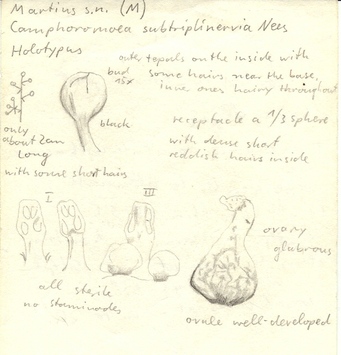 Martius s.n. (M)
Camphoromoea subtriplinervia Nees
Holotypus
outer tepals on the inside with
some hairs near the base,
inne ones hairy throughout
bud
15x
black
only
about 2cm
long
with some short hairs
receptacle a 1/3 sphere
with dense short
reddish hairs inside
I
III
all sterile
no staminodes
ovary
glabrous
ovule well-developed